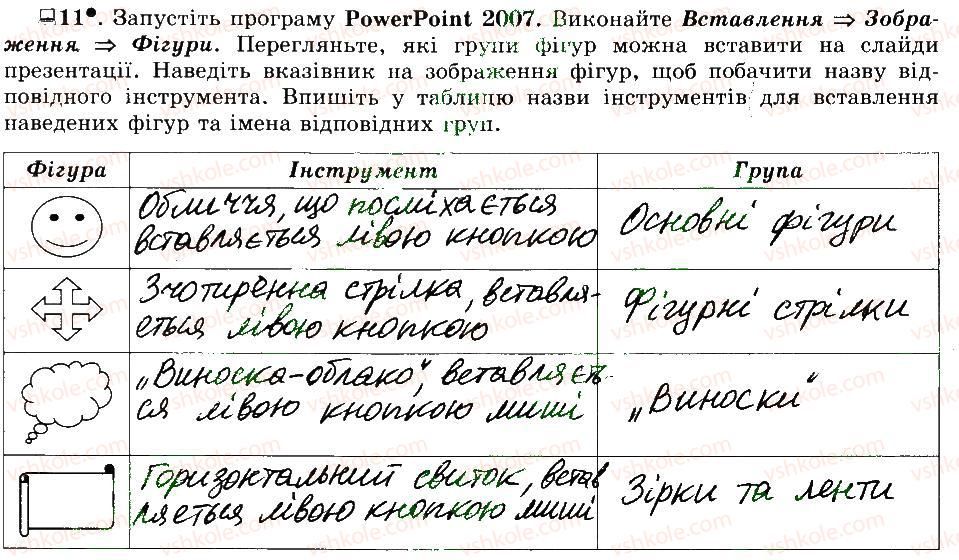 11•. Запустіть програму PowerPoint 2007. Виконайте Вставлення ⇒ Зобра-
ження ⇒ Фігури. Перегляньте, які групи фігур можна вставити на слайди
презентації. Наведіть вказівник на зображення фігур, щоб побачити назву від-
повідного інструмента. Впишіть у таблицю назви інструментів для вставлення
наведених фігур та імена відповідних груп.
Фігура Інструмент Група
Обличчя, що посміхається
вставляється лівою кнопкою
Основні фігури
Зчотирённа стрілка, вставля-
ється лівою кнопкою
Фігурні стрілки
„Виноска-облако", вставляєть-
ся лівою кнопкою миші
„Виноски"
Горизонтальний свиток, встав
ляється лівою кнопкою миші
Зірки та ленти